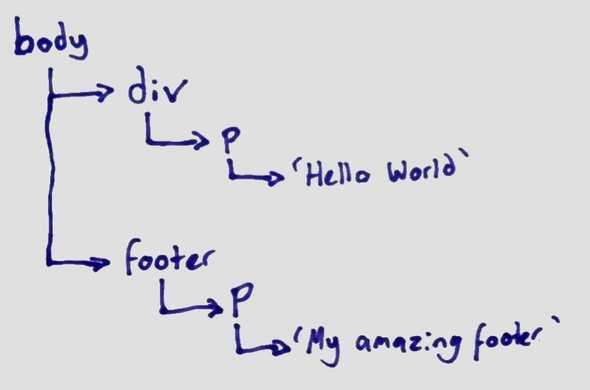 body
div
P
'Hello World`
footer
P
'My amazing footer`